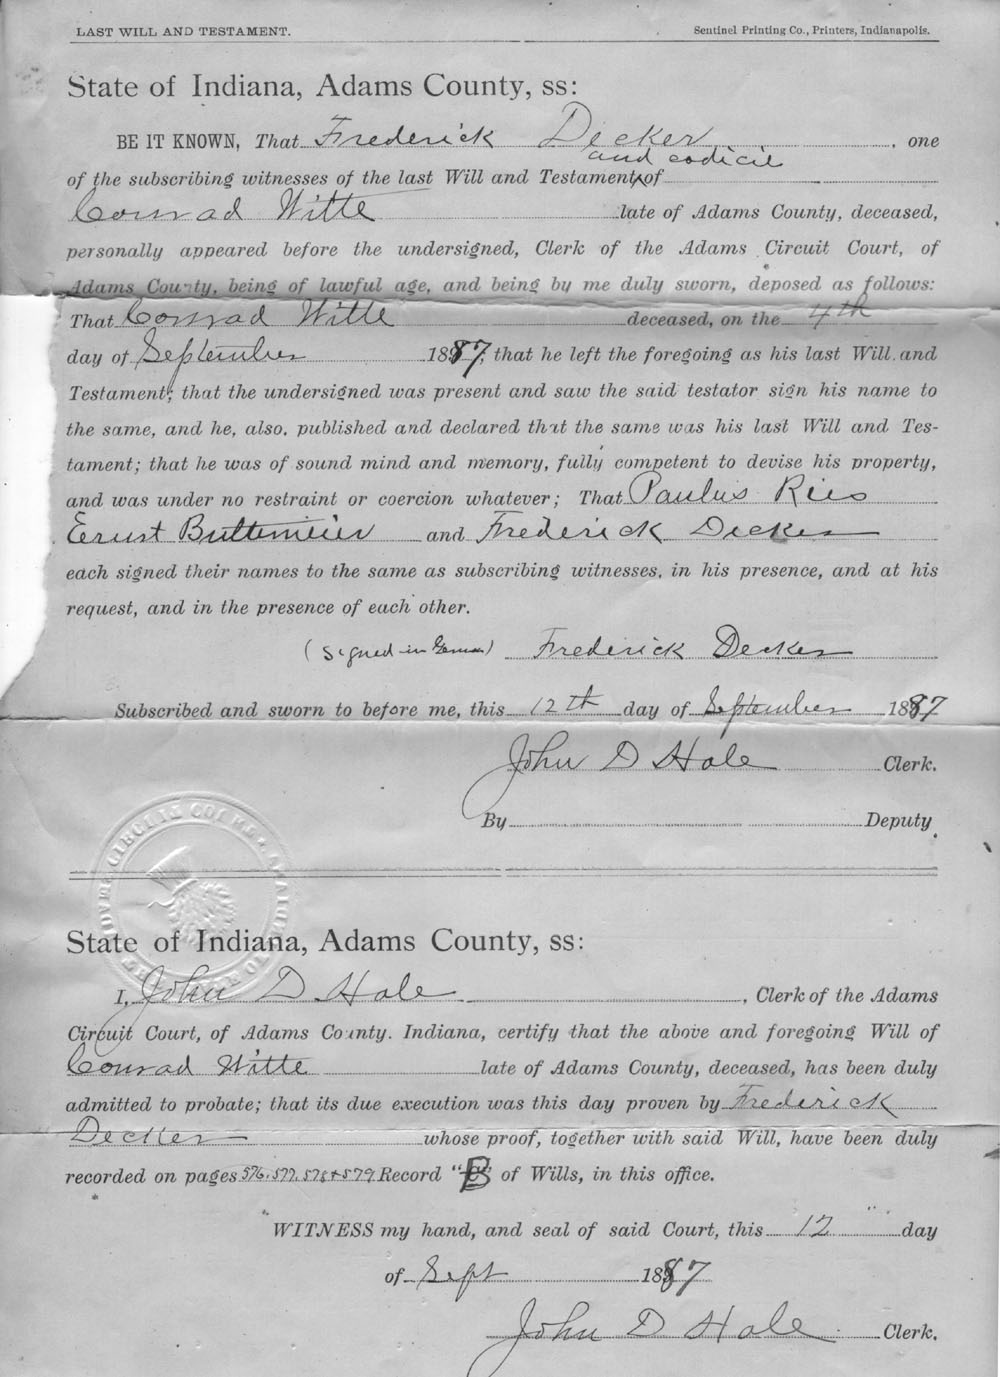 LAST WILL AND TESTAMENT. Sentinel Printing Co., Printers, Indianapolis.
State of Indiana, Adams County, ss:
BE IT KNOWN, That Frederick Decker, one
and codicil
of the subscribing witnesses of the last Will and Testament of
Conrad Witte late of Adams County, deceased,
personally appeared before the undersigned, Clerk of the Adams Circuit Court, of
Adams County, being of lawful age, and being by me duly sworn, deposed as follows:
That Conrad Witte deceased, on the 4th
day of September 1887, that he left the foregoing as his last Will and
Testament; that the undersigned was present and saw the said testator sign his name to
the same, and he, also, published and declared that the same was his last Will and Tes-
tament; that he was of sound mind and memory, fully competent to devise his property,
and was under no restraint or coercion whatever; That Paulus Ries
Ernst Buttemeier and Frederick Decker
each signed their names to the same as subscribing witnesses, in his presence, and at his
request, and in the presence of each other.
(Signed in German) Frederick Decker
Subscribed and sworn to before me, this 12th day of September 1887
John D Hale Clerk.
By Deputy
State of Indiana, Adams County, ss:
I, John D Hale, Clerk of the Adams
Circuit Court, of Adams County. Indiana, certify that the above and foregoing Will of
Conrad Witte late of Adams County, deceased, has been duly
admitted to probate; that its due execution was this day proven by Frederick
Decker whose proof, together with said Will, have been duly
recorded on pages 576, 577, 578 + 579 Record "B" of Wills, in this office.
WITNESS my hand, and seal of said Court, this 12 day
of Sept 1887
John D Hale Clerk.